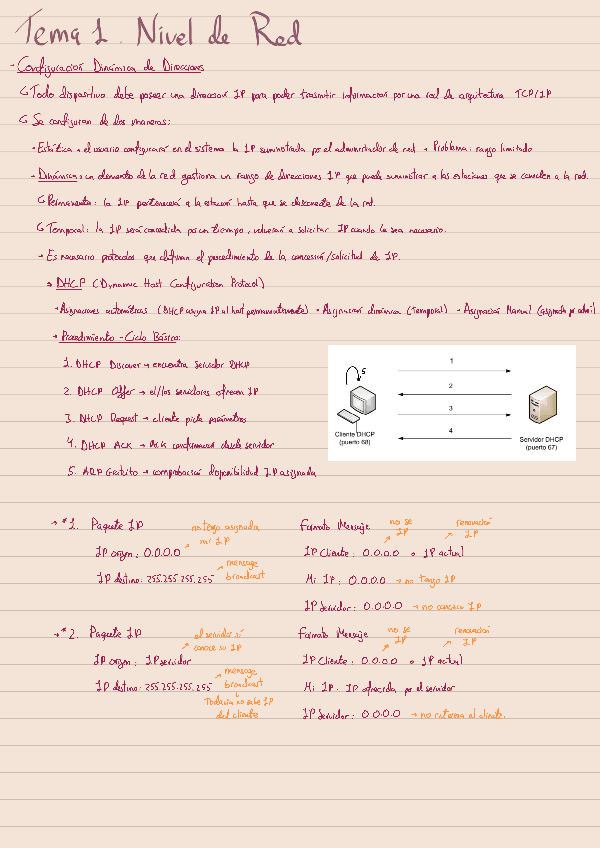 Tema 1. Nivel de Red
- Configuración Dinámica de Direcciones
Todo dispositivo debe poseer una direccion IP para poder trasmitir informacion por una red de arquitectura TCP/IP
Se configuran de dos maneras:
- Estática → el usuario configurará en el sistema la IP suministrada por el administrador de red → Problema: rango limitado
- Dinámica: un elemento de la red gestiona un rango de direcciones IP que puede suministrar a las estaciones que se conecten a la red.
Permanente: la IP pertenecerá a la estación hasta que se desconecte de la red.
Temporal: la IP será concedida por un tiempo, volverán a solicitar IP cuando la sea necesario.
→ Es necesario protocolos que definan el procedimiento de la concesión/solicitud de IP.
→ DHCP (Dynamic Host Configuration Protocol)
- Asignaciones automáticas (DHCP asigna IP al host permanentemente) - Asignacion dinámica (Temporal) - Asignación Manual (asignada por admin)
→ Procedimiento - Ciclo Básico:
1. DHCP Discover → encuentra servidor DHCP
2. DHCP Offer → el/los servidores ofrecen IP
3. DHCP Request → cliente pide parámetros
4. DHCP ACK → Ack confirmación desde servidor
5. ARP Gratuito → comprobación disponibilidad IP asignada
5
1
2
3
4
Cliente DHCP
(puerto 68)
Servidor DHCP
(puerto 67)
→ *1. Paquete IP
no tengo asignada
mi IP
IP origen: 0.0.0.0
IP destino: 255.255.255.255
mensage
broadcast
Formato Mensaje
no se
IP
renovación
IP
IP Cliente: 0.0.0.0 o IP actual
Mi IP: 0.0.0.0 → no tengo IP
IP Servidor: 0.0.0.0 → no conozco IP
→ *2. Paquete IP
el servidor sí
conoce su IP
IP origen: IP servidor
IP destino: 255.255.255.255
mensage
broadcast
Todavía no sabe IP
del cliente
Formato Mensaje
no se
IP
renovación
IP
IP Cliente: 0.0.0.0 o IP actual
Mi IP: IP ofrecida por el servidor
IP Servidor: 0.0.0.0 → no retorna al cliente.